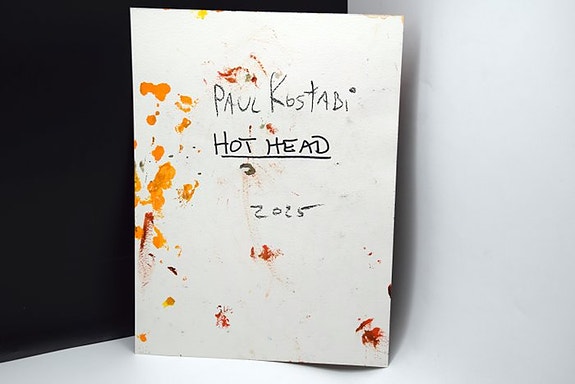 PAUL KOSTABI
HOT HEAD
2025